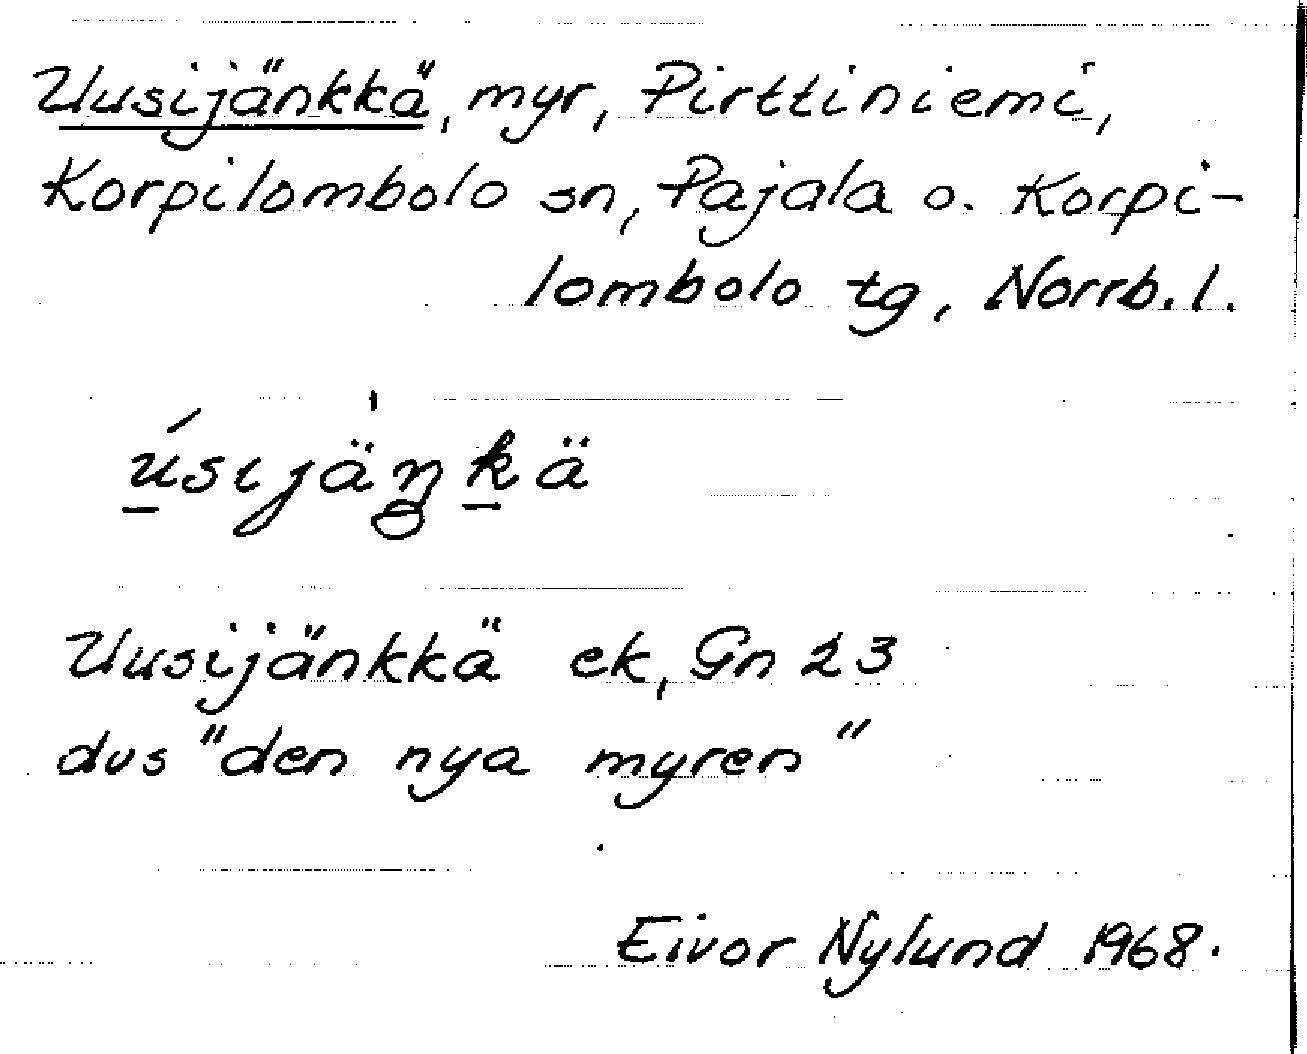 Uusijänkkä, myr, Pirttiniemi,
Korpilombolo sn, Pajala o. Korpi-
lombolo tg, Norrb. l.
ú̱sıjäŋḵä
Uusijänkkä ek, Gn 23
dvs "den nya myren"
Eivor Nylund 1968.